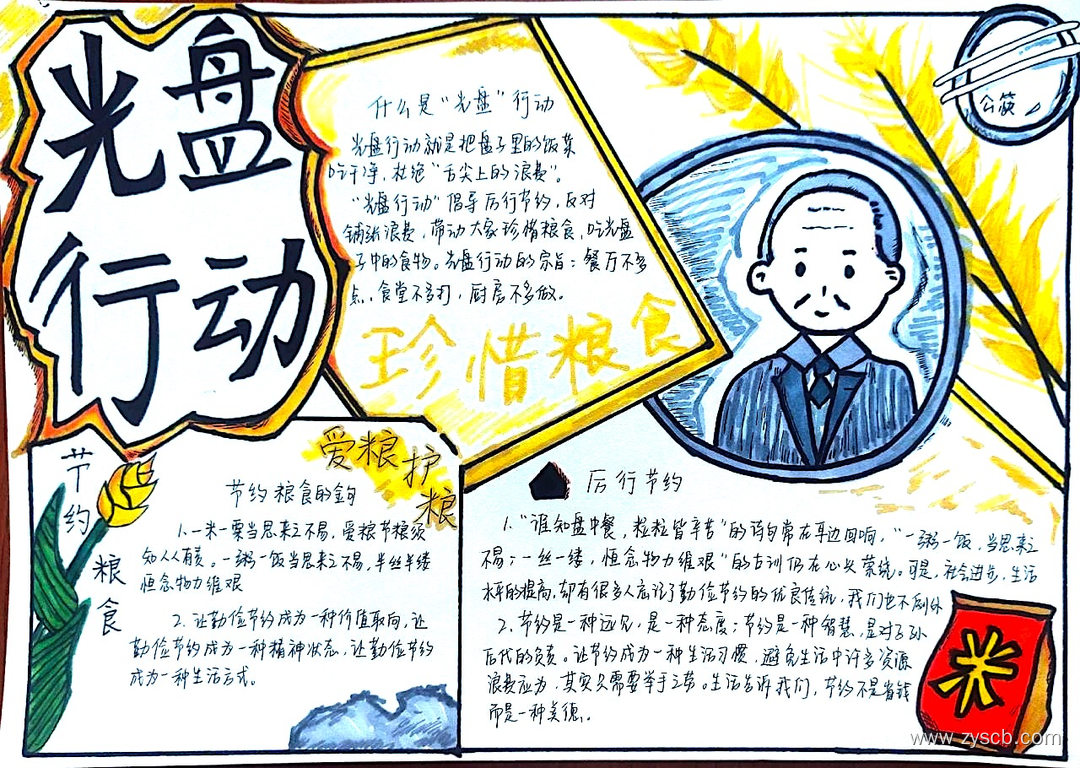 光盘
行动
什么是“光盘”行动
光盘行动就是把盘子里的饭菜
吃干净，杜绝“舌尖上的浪费”。
“光盘行动”倡导厉行节约，反对
铺张浪费，带动大家珍惜粮食，吃光盘
子中的食物。光盘行动的宗旨：餐厅不多
点，食堂不多打，厨房不多做。
珍惜粮食
公筷
节约
粮食
爱粮护
粮
节约粮食的
1.一米一粟当思来之不易，爱粮节粮须
知人人有责。一粥一饭当思来之不易，半丝半缕
恒念物力维艰
2.让勤俭节约成为一种价值取向，让
勤俭节约成为一种精神状态，让勤俭节约
成为一种生活方式。
厉行节约
1.“谁知盘中餐，粒粒皆辛苦”的诗句常在耳边回响，“一粥一饭，当思来之
不易；一丝一缕，恒念物力维艰”的古训仍在心头萦绕。可是，社会进步，生活
水平的提高，却有很多人忘记了勤俭节约的优良传统，我们也不例外
2.节约是一种远见，是一种态度；节约是一种智慧，是对子孙
后代的负责。让节约成为一种生活习惯，避免生活中许多资源
浪费应为，其实只需要举手之劳。生活告诉我们，节约不是省钱
而是一种美德。
米
www.zyscb.com